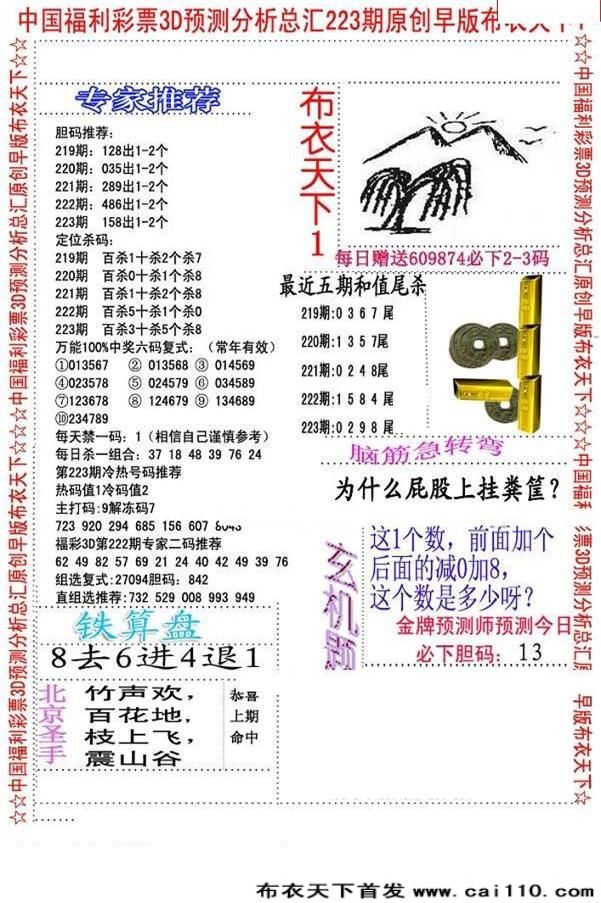 中国福利彩票3D预测分析总汇223期原创早版布衣天下
☆☆中国福利彩票3D预测分析总汇原创早版布衣天下☆☆☆☆中国福利彩票3D预测分析总汇原创早版布衣天下☆☆
专家推荐
胆码推荐:
219期: 128出1-2个
220期: 035出1-2个
221期: 289出1-2个
222期: 486出1-2个
223期 158出1-2个
定位杀码:
219期 百杀1十杀2个杀7
220期 百杀0十杀1个杀8
221期 百杀1十杀2个杀8
222期 百杀5十杀1个杀0
223期 百杀3十杀5个杀8
万能100%中奖六码复式: (常年有效)
①013567 ② 013568 ③ 014569
④023578 ⑤ 024579 ⑥ 034589
⑦123678 ⑧ 124679 ⑨ 134689
⑩234789
每天禁一码: 1 (相信自己谨慎参考)
每日杀一组合: 37 18 48 39 76 24
第223期冷热号码推荐
热码值1冷码值2
主打码:9解冻码7
723 920 294 685 156 607
福彩3D第222期专家二码推荐
62 49 82 57 69 21 24 40 42 49 39 76
组选复式:27094胆码: 842
直组选推荐:732 529 008 993 949
铁算盘
8去6进4退1
北京圣手
竹声欢,
百花地,
枝上飞,
震山谷
恭喜
上期
命中
布衣天下1
每日赠送609874必下2-3码
最近五期和值尾杀
219期:0 3 6 7 尾
220期:1 3 5 7尾
221期:0 2 4 8尾
222期:1 5 8 4 尾
223期:0 2 9 8 尾
脑筋急转弯
为什么屁股上挂粪筐?
玄机题
这1个数, 前面加个
后面的减0加8,
这个数是多少呀?
金牌预测师预测今日
必下胆码: 13
☆☆中国福利彩票3D预测分析总汇原创早版布衣天下☆☆☆☆中国福利
彩票3D预测分析总汇原
早版布衣天下☆☆
布衣天下首发 www.cai110.com